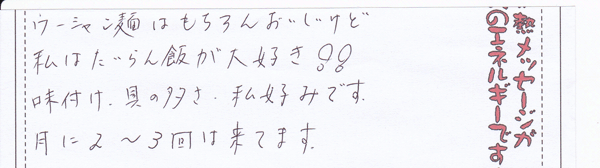 ウーシャン麺はもちろんおいしいけど
私はたーらん飯が大好き!!
味付け、具の多さ、私好みです。
月に2～3回は来てます。
熱メッセージが
のエネルギーです